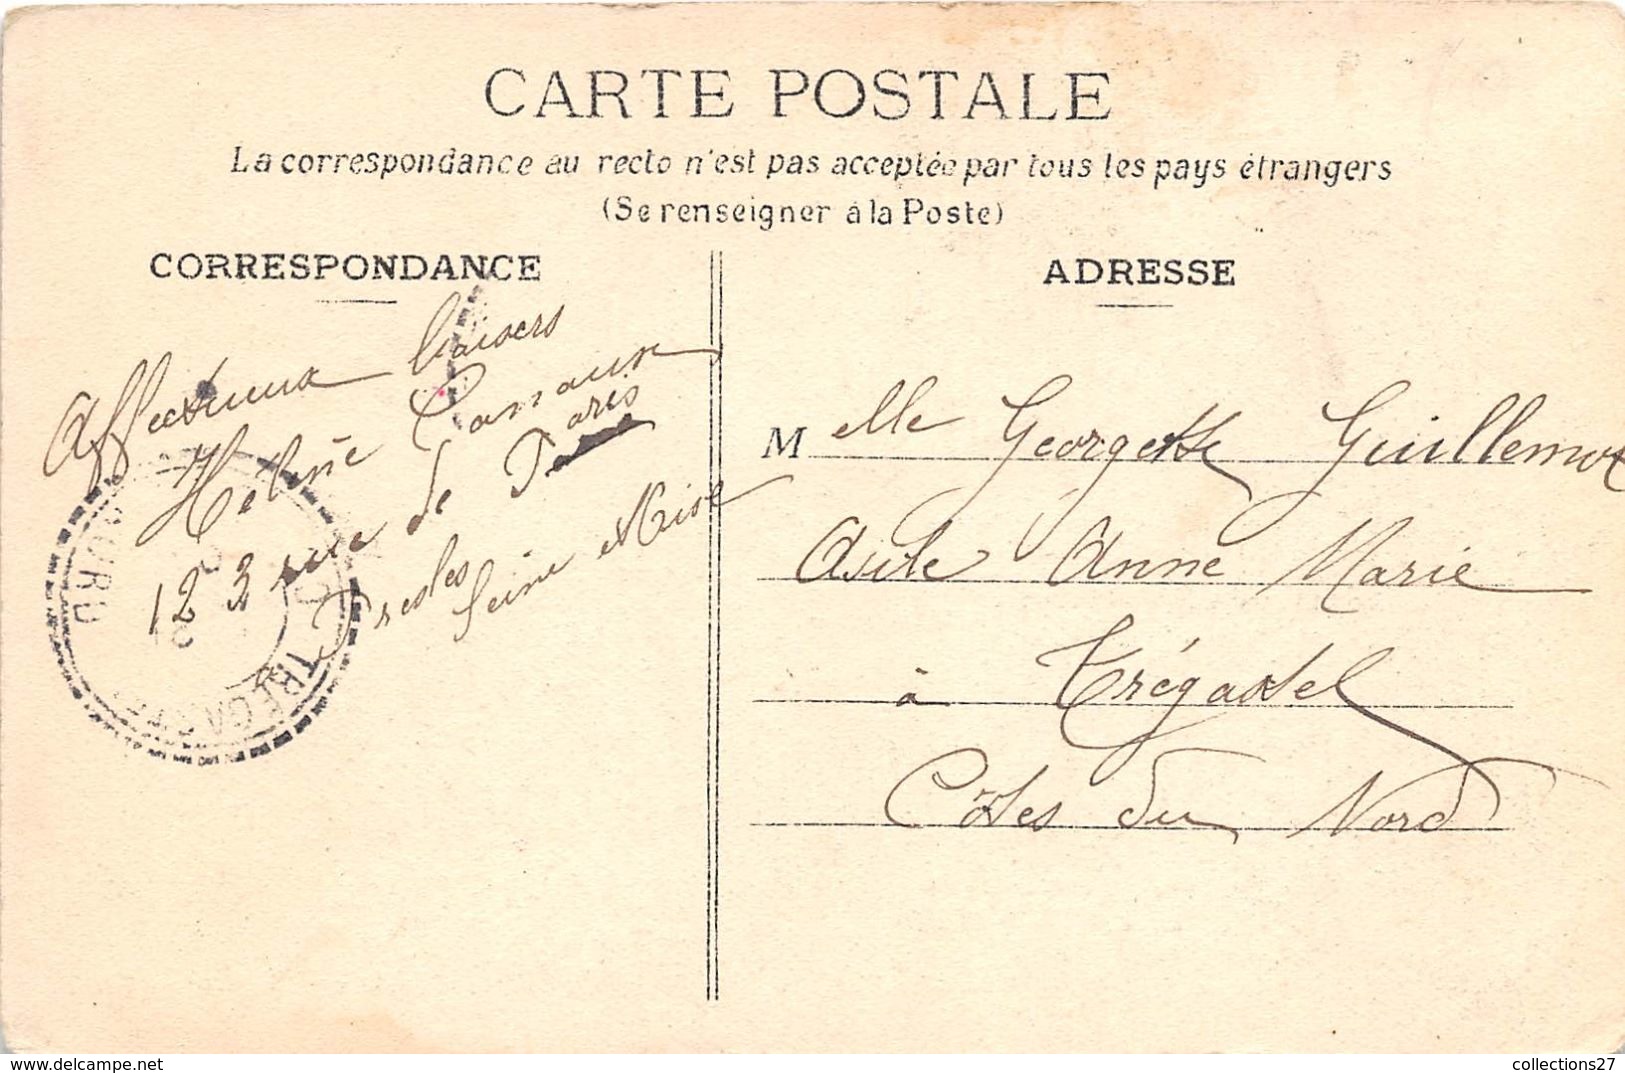 CARTE POSTALE
La correspondance au recto n'est pas acceptée par tous les pays étrangers
(Se renseigner à la Poste)
CORRESPONDANCE
Affectueux baisers
Hélène
123 rue de Paris
Presles
Seine et Oise
TRÉGAS
ADRESSE
Melle Georgette Guillemot
Asile Anne Marie
à Trégastel
Côtes du Nord
delcampe.net
collections27